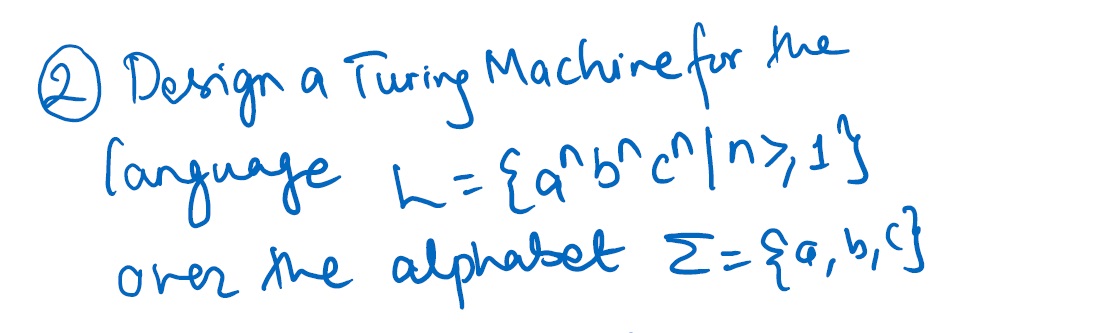 ② Design a Turing Machine for the
language L = {aⁿbⁿcⁿ | n ⩾ 1}
over the alphabet Σ = {a, b, c}